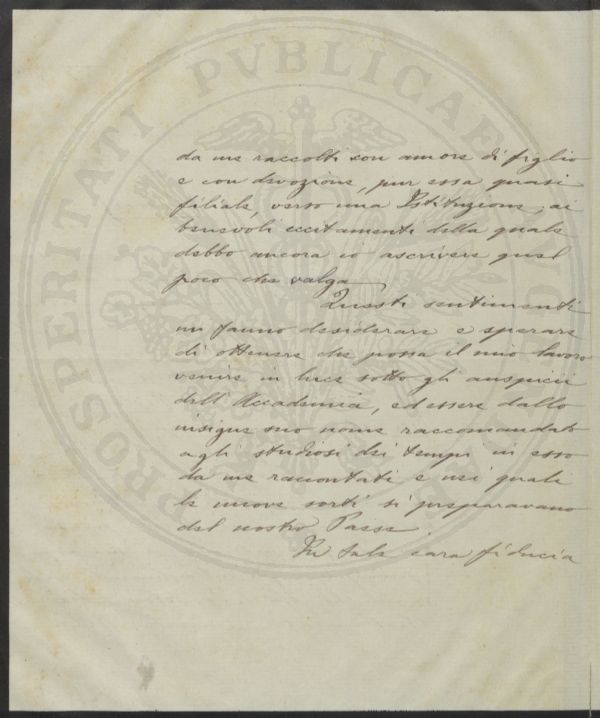 PROSPERITATI PVBLICAE
da me raccolti con amore di figlio
e con devozione, pur essa quasi
filiale, verso una Istituzione, ai
benevoli eccitamenti della quale
debbo ancora io ascrivere quel
poco che valga.
Questi sentimenti
mi fanno desiderare e sperare
di ottenere che possa il mio lavoro
venire in luce sotto gli auspicii
dell'Accademia, ed essere dallo
insigne suo nome raccomandato
agli studiosi dei tempi in esso
da me raccontati e nei quali
le nuove sorti si preparavano
del nostro Paese.
In tale cara fiducia